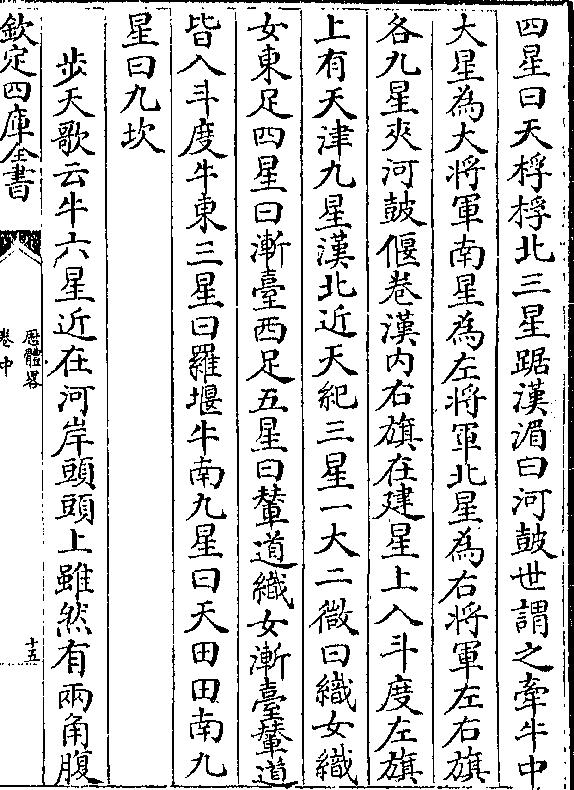 四星曰天桴桴北三星踞漢湄曰河皷世謂之牽牛中
大星為大將軍南星為左將軍北星為右將軍左右旗
各九星夾河皷偃卷漢内右旗在建星上入斗度左旗
上有天津九星漢北近天紀三星一大二微曰織女織
女東足四星曰漸臺西足五星曰輦道織女漸臺輦道
皆入斗度牛東三星曰羅堰牛南九星曰天田田南九
星曰九坎
步天歌云牛六星近在河岸頭頭上雖然有兩角腹
欽定四庫全書
厯體畧
卷中
十五